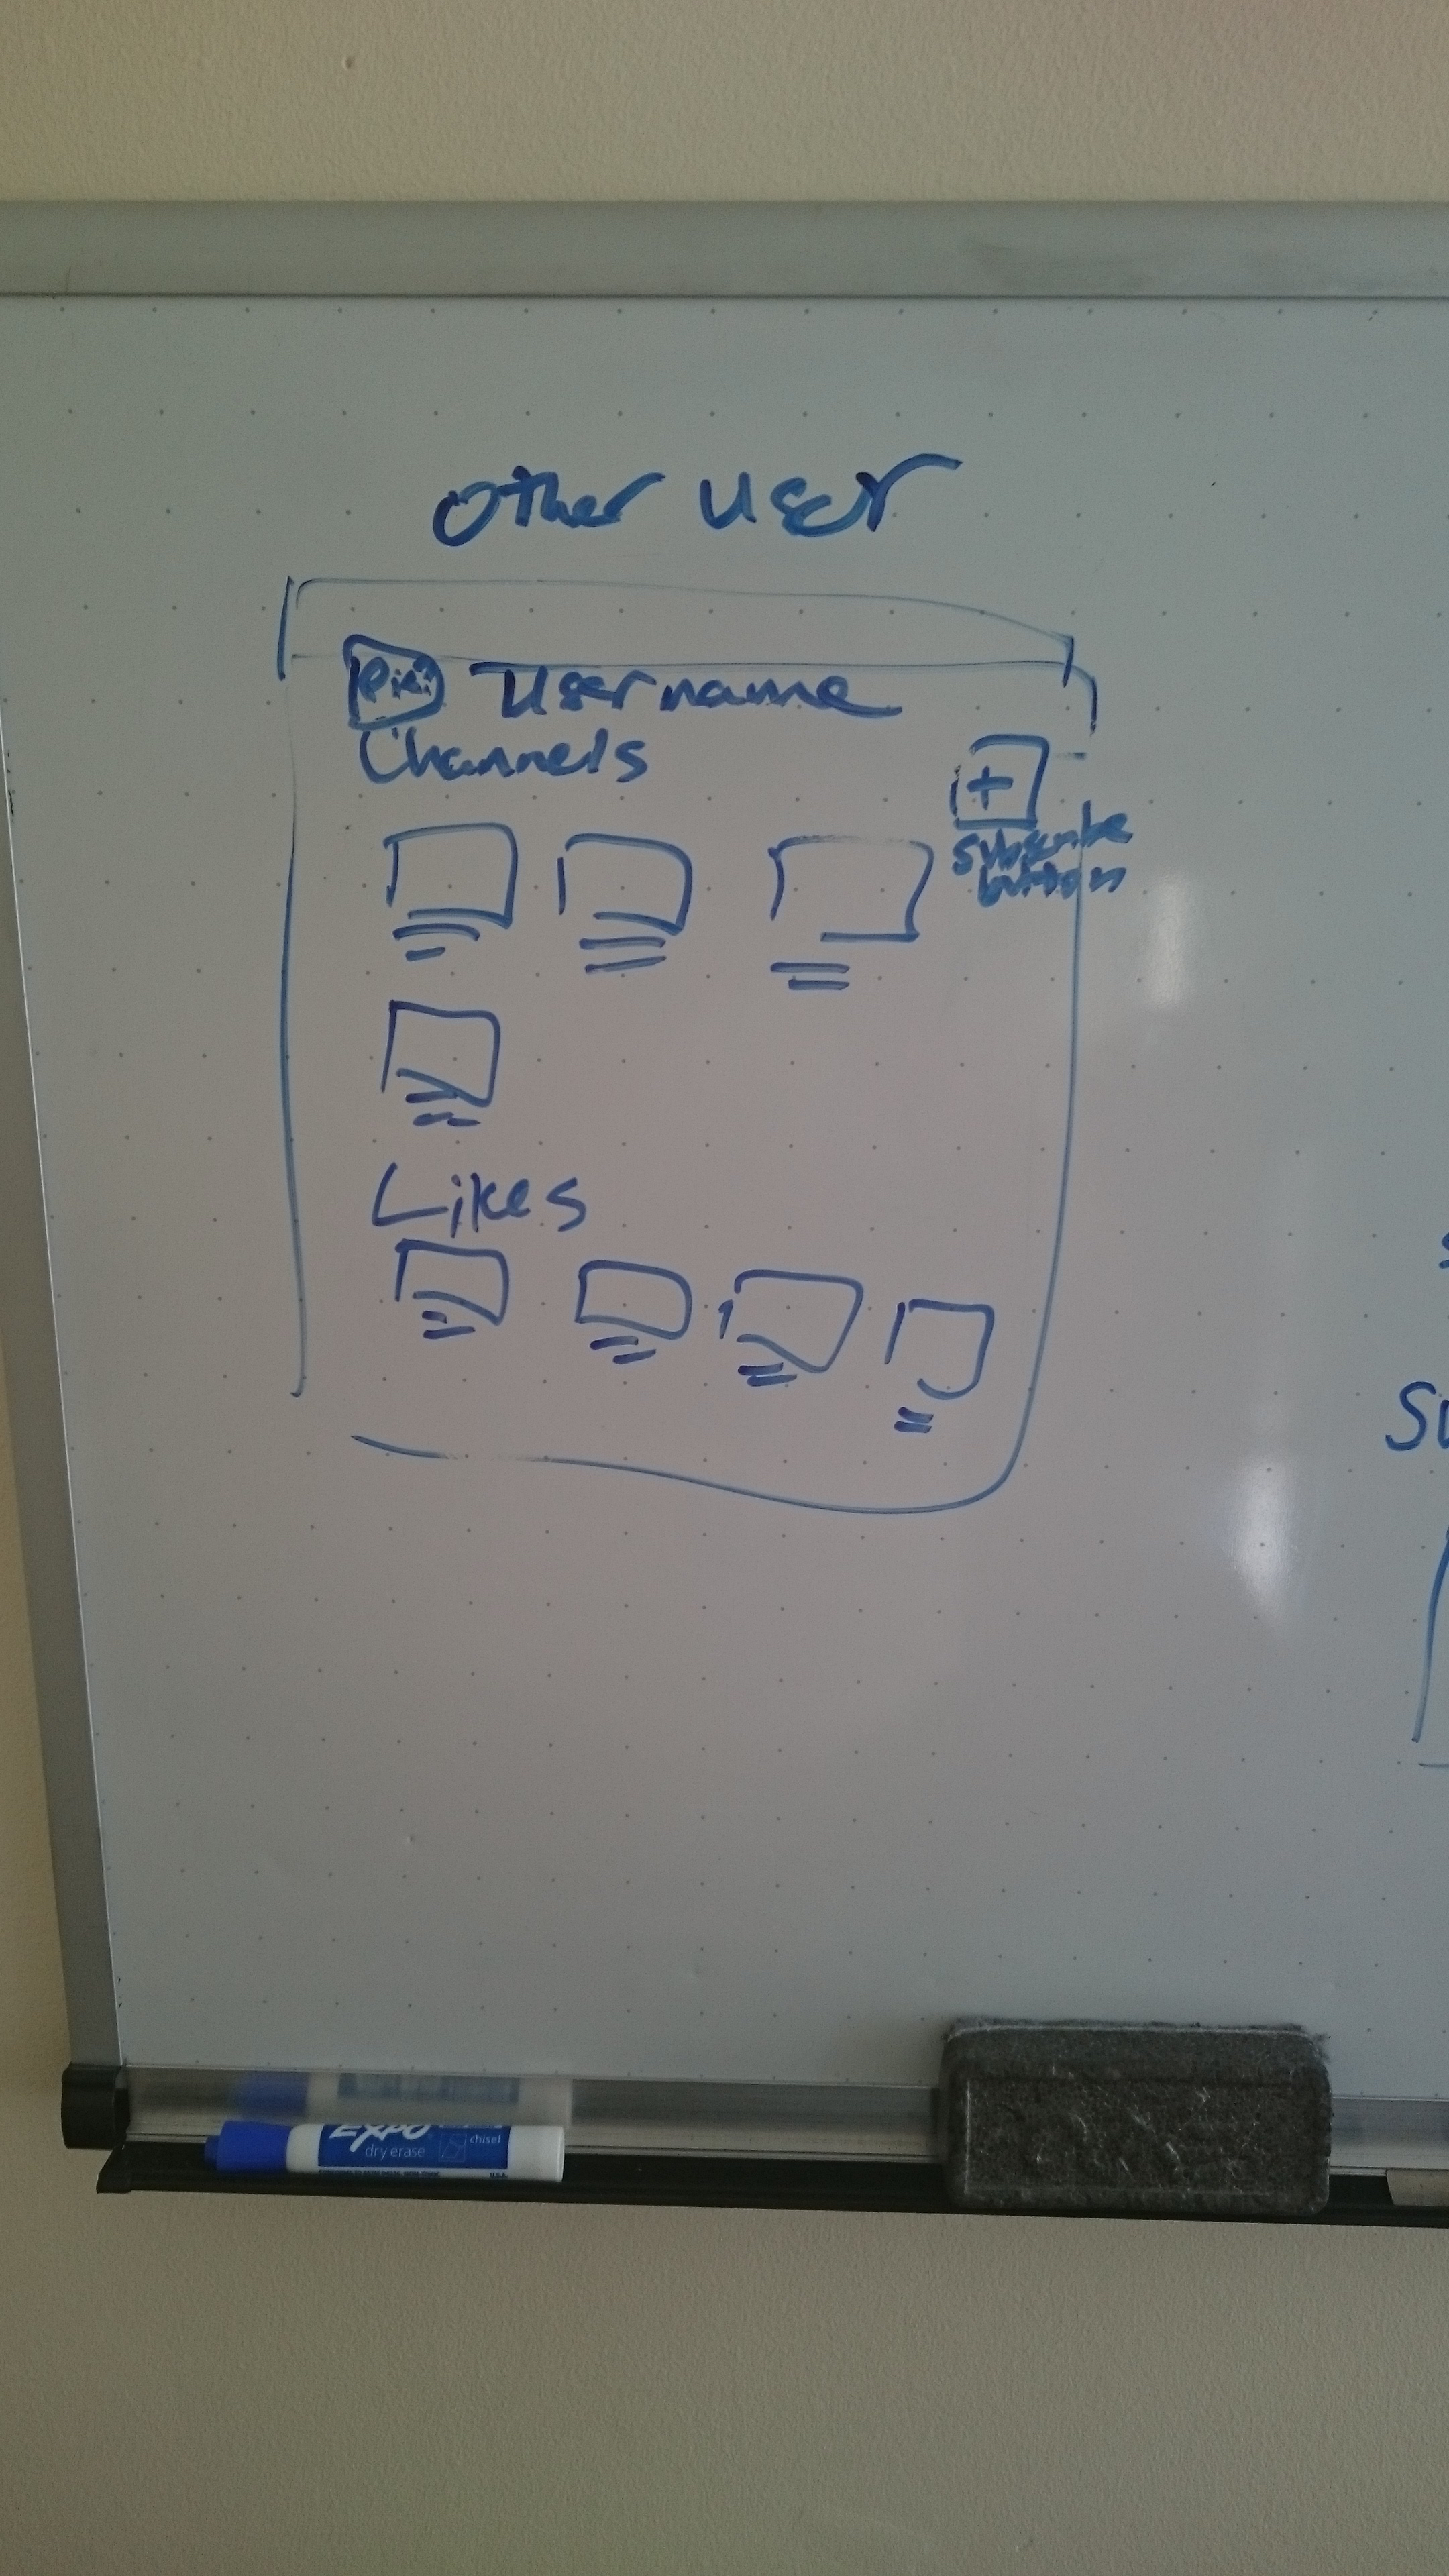 Other User
Pic Username
Channels
+
Subscribe
button
Likes
Su
EXPO
dry erase
chisel
U.S.A.